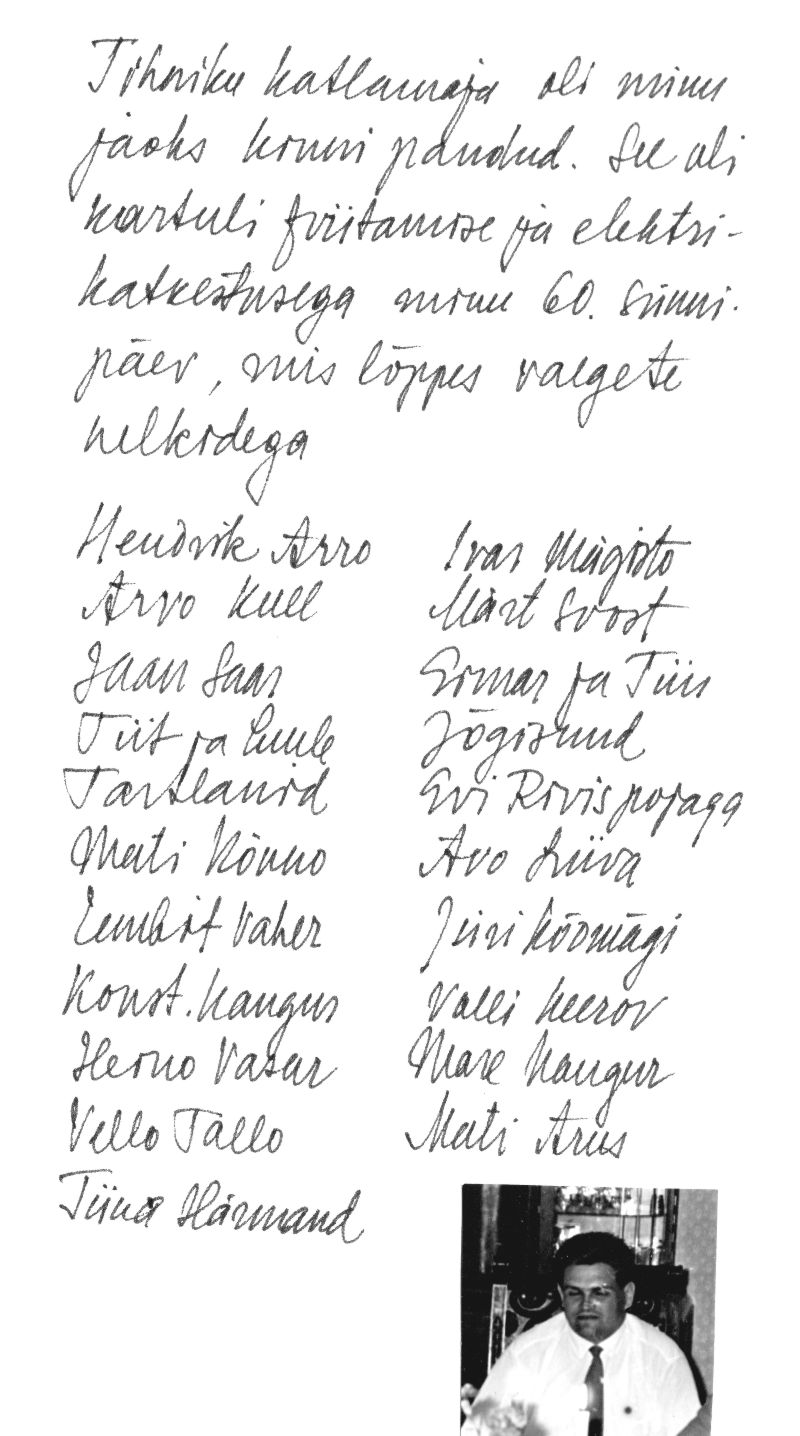 Tihniku katlamaja oli minu
jaoks kinni pandud. See oli
kartuli friitamise ja elektri-
katkestusega minu 60. sünni-
päev, mis lõppes valgete
nelkidega
Hendrik Arro
Arvo Kull
Jaan Saar
Tiit ja Luule
Tartlanid
Mati Kõnno
Lembit Vaher
Konst. Kangur
Heino Vasar
Vello Tallo
Tiina Härmand
Ivar Mägisto
Märt
Eimar ja Tiiu
Jõgisuud
Evi Rivis pojaga
Avo Liiva
Jüri Kõomägi
Valli Keerov
Mare Kangur
Mati Arus